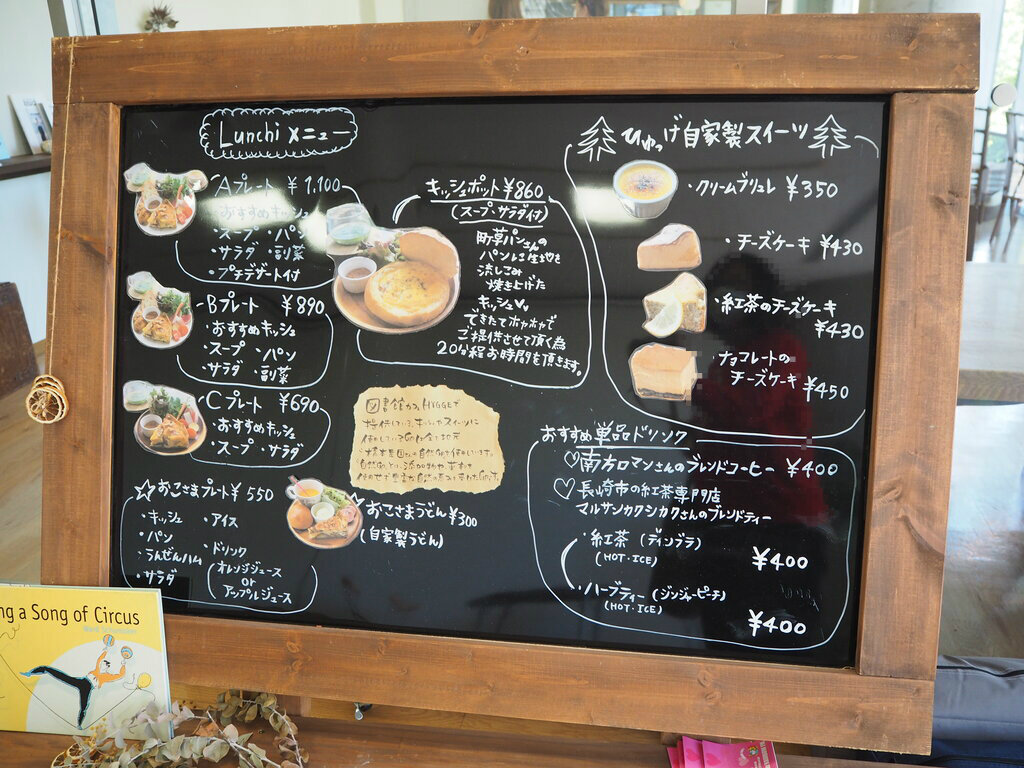 Lunchi メニュー
Aプレート ¥1,100
・おすすめキッシュ
・スープ ・パン
・サラダ ・副菜
・プチデザート付
Bプレート ¥890
・おすすめキッシュ
・スープ ・パン
・サラダ ・副菜
Cプレート ¥690
・おすすめキッシュ
・スープ ・サラダ
☆おこさまプレート¥550
・キッシュ ・アイス
・パン
・うんぜんハム ・ドリンク
・サラダ (オレンジジュース
or
アップルジュース
キッシュポット¥860
(スープ・サラダ付)
町草パンさんの
パンに生地を
流しこみ
焼き上げた
キッシュ
できたてホヤホヤで
ご提供させて頂く為
20分程お時間を頂きます。
図書館カフェHYGGEで
☆おこさまうどん¥300
(自家製うどん)
ひゅっげ自家製スイーツ
・クリームブリュレ ¥350
・チーズケーキ ¥430
・紅茶のチーズケーキ
¥430
・チョコレートの
チーズケーキ ¥450
おすすめ単品ドリンク
♡南方ロマンさんのブレンドコーヒー ¥400
♡長崎市の紅茶専門店
マルサンカクシカクさんのブレンドティー
・紅茶 (ディンブラ)
(HOT・ICE) ¥400
・ハーブティー (ジンジャーピーチ)
(HOT・ICE) ¥400
ng a Song of Circus